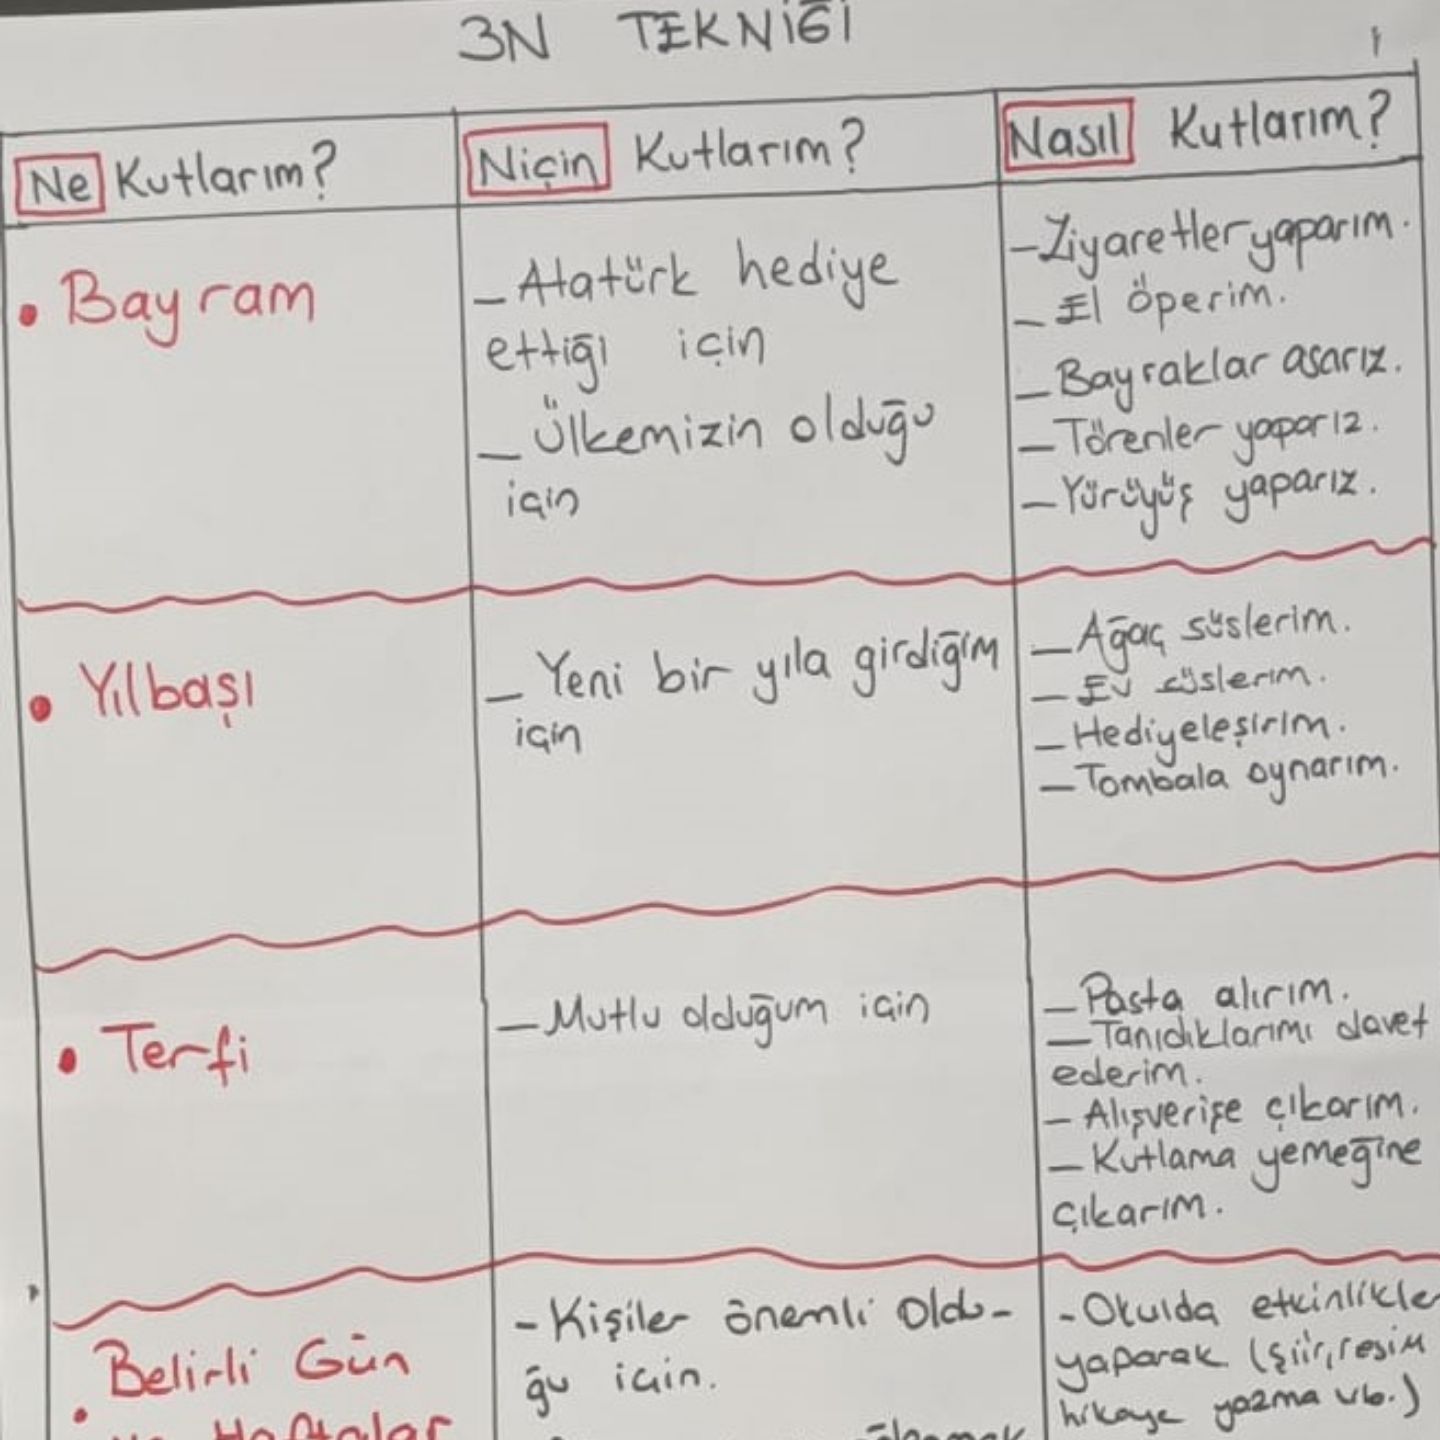 3N TEKNİĞİ
Ne Kutlarım?
Niçin Kutlarım?
Nasıl Kutlarım?
• Bayram
– Atatürk hediye
ettiği için
– Ülkemizin olduğu
için
– Ziyaretler yaparım.
– El öperim.
– Bayraklar asarız.
– Törenler yaparız.
– Yürüyüş yaparız.
• Yılbaşı
– Yeni bir yıla girdiğim
için
– Ağaç süslerim.
– Ev süslerim.
– Hediyeleşirim.
– Tombala oynarım.
• Terfi
– Mutlu olduğum için
– Pasta alırım.
– Tanıdıklarımı davet
ederim.
– Alışverişe çıkarım.
– Kutlama yemeğine
çıkarım.
• Belirli Gün
ve Haftalar
- Kişiler önemli oldu-
ğu için.
- Okulda etkinlikle
yaparak (şiir, resim
hikaye yazma vb.)